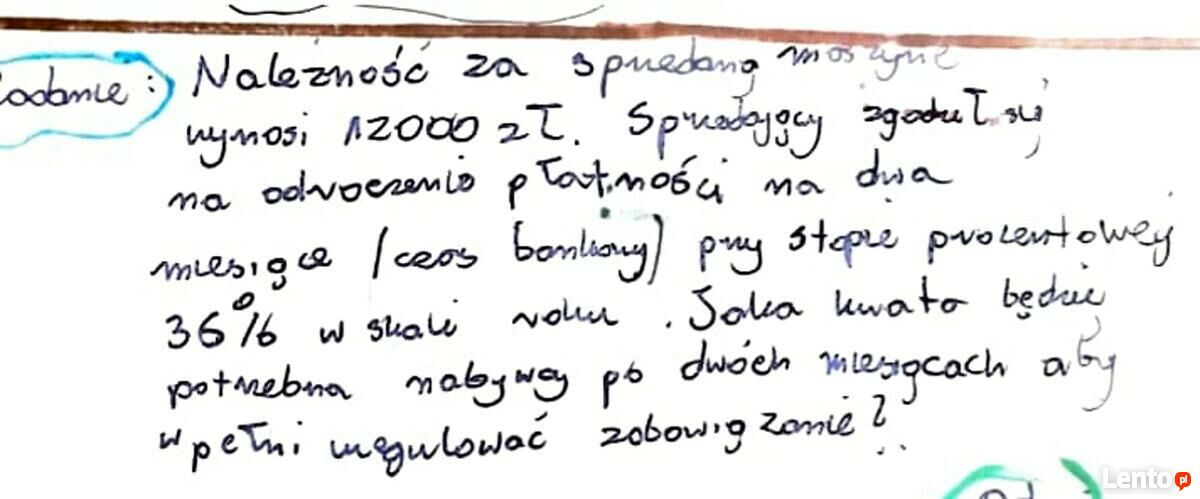 Zadanie: Należność za sprzedaną maszynę
wynosi 12000 zł. Sprzedający zgodził się
na odroczenie płatności na dwa
miesiące /czas bankowy/ przy stopie procentowej
36% w skali roku. Jaka kwota będzie
potrzebna nabywcy po dwóch miesiącach aby
w pełni uregulować zobowiązanie?
Lento.pl